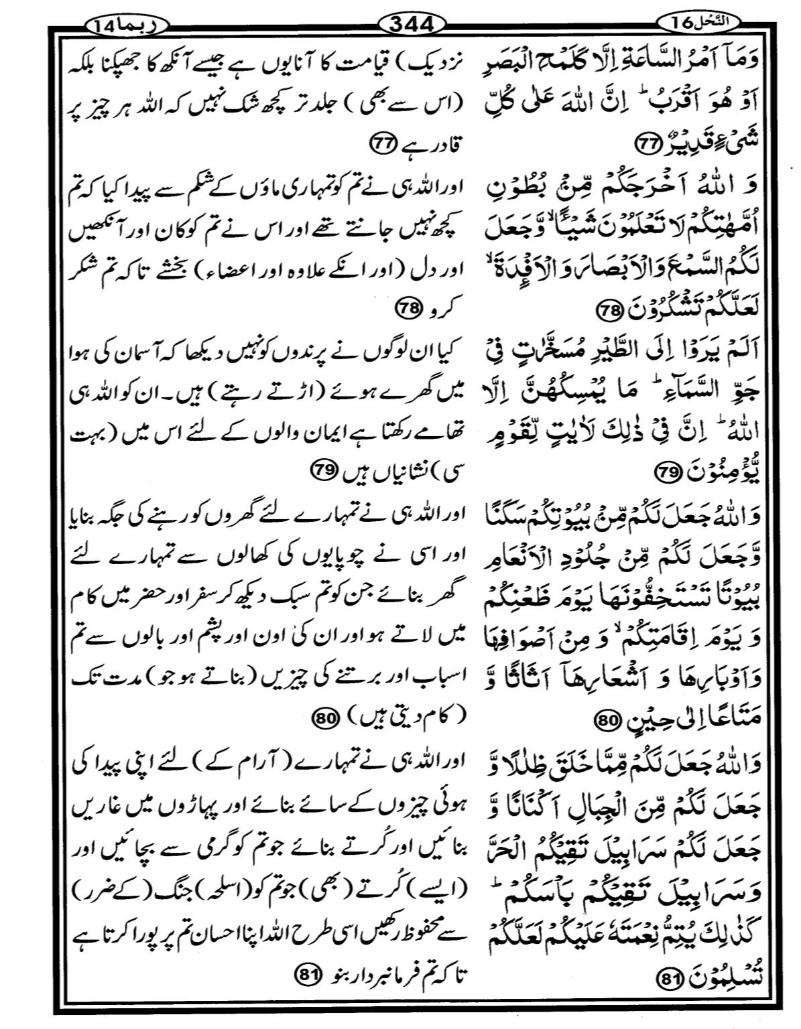 النَّحْل 16
344
ربما 14
وَمَآ اَمْرُ السَّاعَةِ اِلَّا كَلَمْحِ الْبَصَرِ
اَوْ هُوَ اَقْرَبُ ؕ اِنَّ اللّٰهَ عَلٰى كُلِّ
شَىْءٍ قَدِيْرٌ 77
وَ اللّٰهُ اَخْرَجَكُمْ مِّنْۢ بُطُوْنِ
اُمَّهٰتِكُمْ لَا تَعْلَمُوْنَ شَيْـًٔا ۙ وَّجَعَلَ
لَكُمُ السَّمْعَ وَالْاَبْصَارَ وَالْاَفْـِٕدَةَ ۙ
لَعَلَّكُمْ تَشْكُرُوْنَ 78
اَلَمْ يَرَوْا اِلَى الطَّيْرِ مُسَخَّرٰتٍ فِىْ
جَوِّ السَّمَآءِ ؕ مَا يُمْسِكُهُنَّ اِلَّا
اللّٰهُ ؕ اِنَّ فِىْ ذٰلِكَ لَاٰيٰتٍ لِّقَوْمٍ
يُّؤْمِنُوْنَ 79
وَاللّٰهُ جَعَلَ لَكُمْ مِّنْۢ بُيُوْتِكُمْ سَكَنًا
وَّجَعَلَ لَكُمْ مِّنْ جُلُوْدِ الْاَنْعَامِ
بُيُوْتًا تَسْتَخِفُّوْنَهَا يَوْمَ ظَعْنِكُمْ
وَ يَوْمَ اِقَامَتِكُمْ ۙ وَ مِنْ اَصْوَافِهَا
وَاَوْبَارِهَا وَ اَشْعَارِهَآ اَثَاثًا وَّ
مَتَاعًا اِلٰى حِيْنٍ 80
وَاللّٰهُ جَعَلَ لَكُمْ مِّمَّا خَلَقَ ظِلٰلًا وَّ
جَعَلَ لَكُمْ مِّنَ الْجِبَالِ اَكْنَانًا وَّ
جَعَلَ لَكُمْ سَرَابِيْلَ تَقِيْكُمُ الْحَرَّ
وَسَرَابِيْلَ تَقِيْكُمْ بَاْسَكُمْ ؕ
كَذٰلِكَ يُتِمُّ نِعْمَتَهٗ عَلَيْكُمْ لَعَلَّكُمْ
تُسْلِمُوْنَ 81
نزدیک) قیامت کا آنا یوں ہے جیسے آنکھ کا جھپکنا بلکہ
(اس سے بھی) جلد تر کچھ شک نہیں کہ اللہ ہر چیز پر
قادر ہے 77
اور اللہ ہی نے تم کو تمہاری ماؤں کے شکم سے پیدا کیا کہ تم
کچھ نہیں جانتے تھے اور اس نے تم کو کان اور آنکھیں
اور دل (اور انکے علاوہ اور اعضاء) بخشے تاکہ تم شکر
کرو 78
کیا ان لوگوں نے پرندوں کو نہیں دیکھا کہ آسمان کی ہوا
میں گھرے ہوئے (اڑتے رہتے) ہیں۔ ان کو اللہ ہی
تھامے رکھتا ہے ایمان والوں کے لئے اس میں (بہت
سی) نشانیاں ہیں 79
اور اللہ ہی نے تمہارے لئے گھروں کو رہنے کی جگہ بنایا
اور اسی نے چوپایوں کی کھالوں سے تمہارے لئے
گھر بنائے جن کو تم سبک دیکھ کر سفر اور حضر میں کام
میں لاتے ہو اور ان کی اون اور پشم اور بالوں سے تم
اسباب اور برتنے کی چیزیں (بناتے ہو جو) مدت تک
(کام دیتی ہیں) 80
اور اللہ ہی نے تمہارے (آرام کے) لئے اپنی پیدا کی
ہوئی چیزوں کے سائے بنائے اور پہاڑوں میں غاریں
بنائیں اور کُرتے بنائے جو تم کو گرمی سے بچائیں اور
(ایسے) کُرتے (بھی) جو تم کو (اسلحہ) جنگ (کے ضرر)
سے محفوظ رکھیں اسی طرح اللہ اپنا احسان تم پر پورا کرتا ہے
تاکہ تم فرمانبردار بنو 81